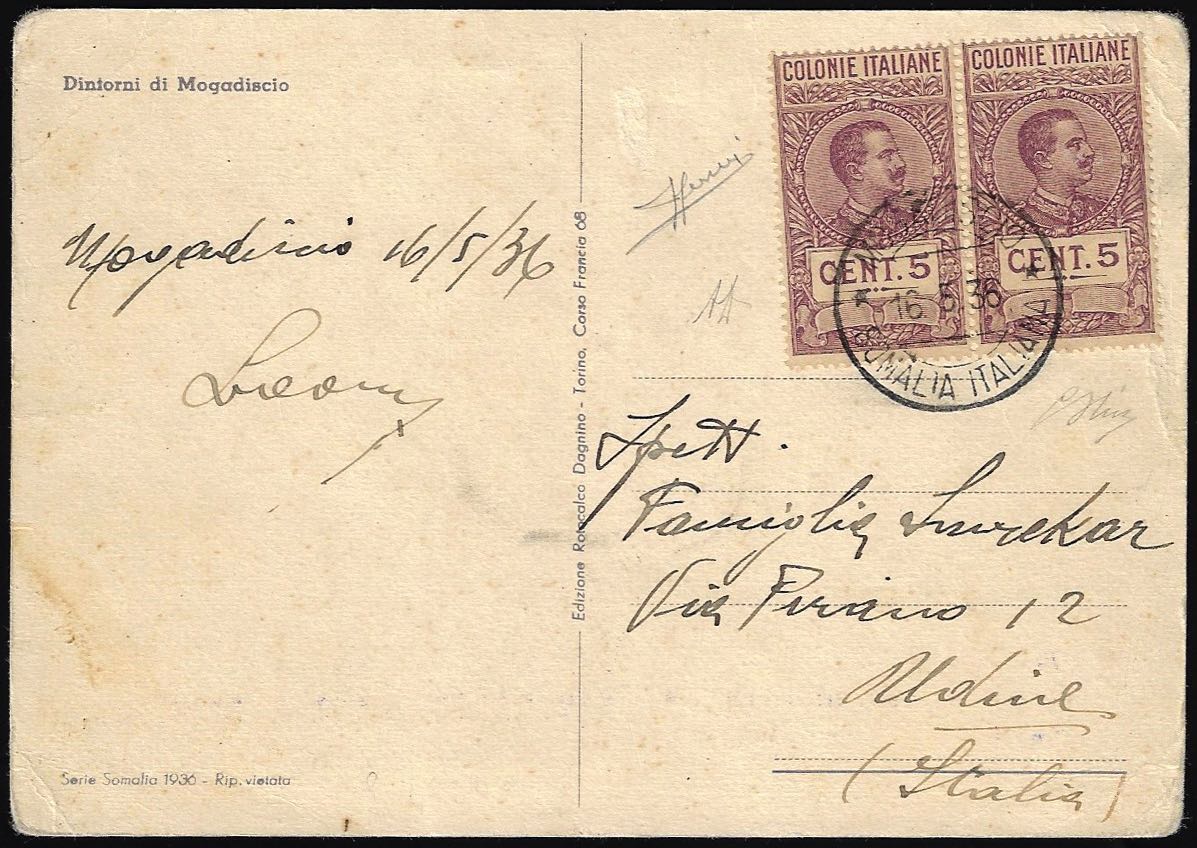 Dintorni di Mogadiscio
Mogadiscio 16/5/36
Edizione Rotocalco Dagnino - Torino, Corso Francia 68
Serie Somalia 1936 - Rip. vietata
COLONIE ITALIANE
CENT. 5
COLONIE ITALIANE
CENT. 5
16 5 36
SOMALIA ITALIANA
Spett.
Famiglia
Via Pirano 12
Udine
(Italia)